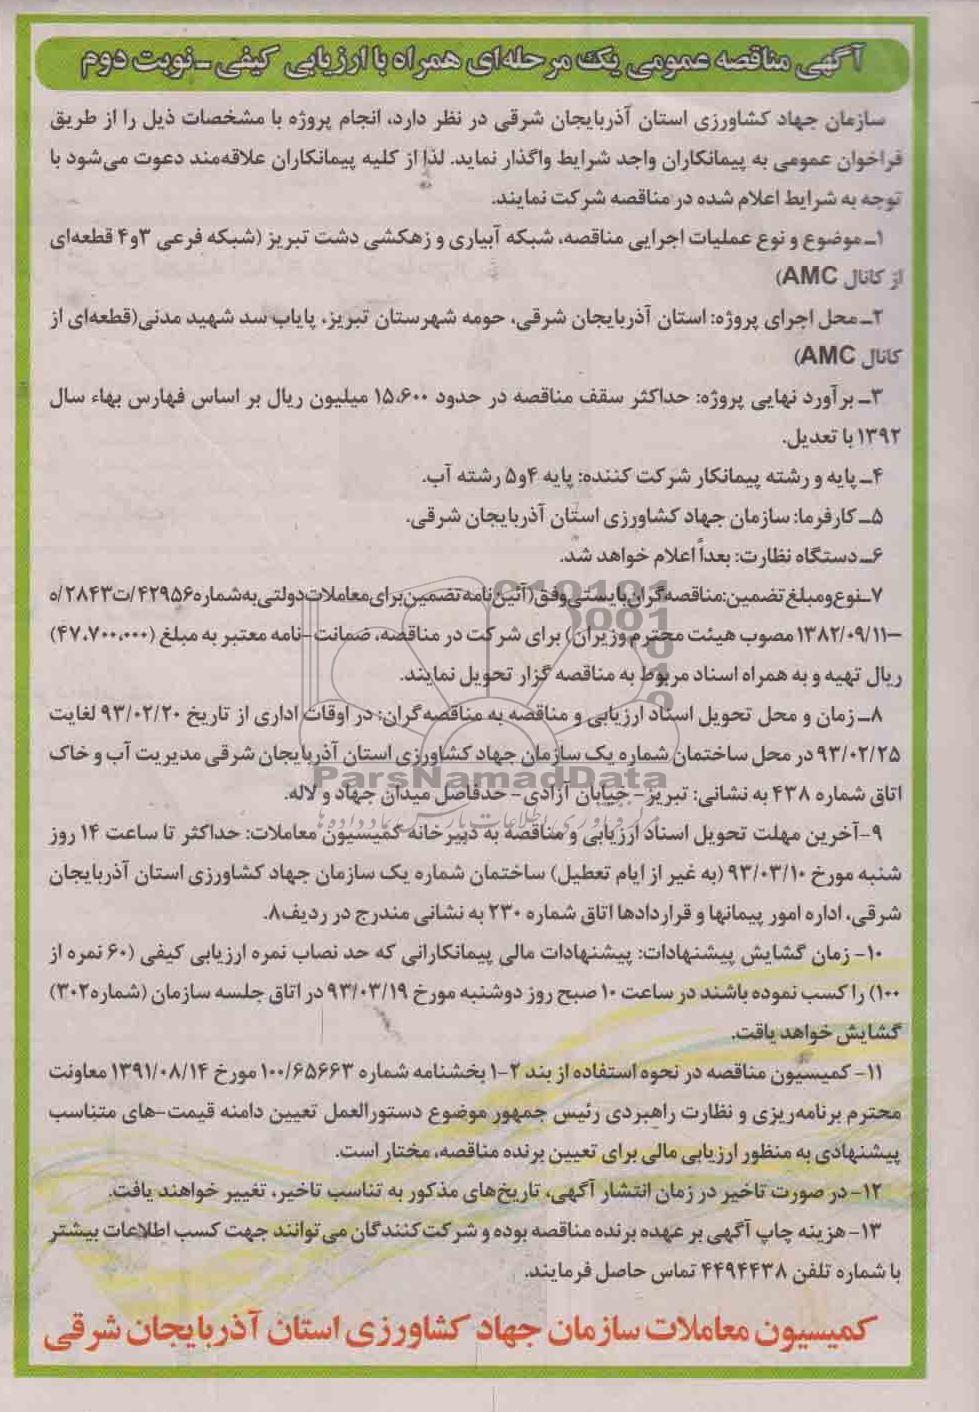 آگهی مناقصه عمومی یک مرحله‌ای همراه با ارزیابی کیفی ـ نوبت دوم
سازمان جهاد کشاورزی استان آذربایجان شرقی در نظر دارد، انجام پروژه با مشخصات ذیل را از طریق
فراخوان عمومی به پیمانکاران واجد شرایط واگذار نماید. لذا از کلیه پیمانکاران علاقه‌مند دعوت می‌شود با
توجه به شرایط اعلام شده در مناقصه شرکت نمایند.
۱ـ موضوع و نوع عملیات اجرایی مناقصه، شبکه آبیاری و زهکشی دشت تبریز (شبکه فرعی ۳و۴ قطعه‌ای
از کانال AMC)
۲ـ محل اجرای پروژه: استان آذربایجان شرقی، حومه شهرستان تبریز، پایاب سد شهید مدنی(قطعه‌ای از
کانال AMC)
۳ـ برآورد نهایی پروژه: حداکثر سقف مناقصه در حدود ۱۵،۶۰۰ میلیون ریال بر اساس فهارس بهاء سال
۱۳۹۲ با تعدیل.
۴ـ پایه و رشته پیمانکار شرکت کننده: پایه ۴و۵ رشته آب.
۵ـ کارفرما: سازمان جهاد کشاورزی استان آذربایجان شرقی.
۶ـ دستگاه نظارت: بعداً اعلام خواهد شد.
۷ـ نوع و مبلغ تضمین: مناقصه‌گران بایستی وفق (آئین نامه تضمین برای معاملات دولتی به شماره ۴۲۹۵۶/ت۲۸۴۳/ه
–۱۳۸۲/۰۹/۱۱ مصوب هیئت محترم وزیران) برای شرکت در مناقصه، ضمانت-نامه معتبر به مبلغ (۴۷،۷۰۰،۰۰۰)
ریال تهیه و به همراه اسناد مربوط به مناقصه گزار تحویل نمایند.
۸ـ زمان و محل تحویل اسناد ارزیابی و مناقصه به مناقصه‌گران: در اوقات اداری از تاریخ ۹۳/۰۲/۲۰ لغایت
۹۳/۰۲/۲۵ در محل ساختمان شماره یک سازمان جهاد کشاورزی استان آذربایجان شرقی مدیریت آب و خاک
اتاق شماره ۴۳۸ به نشانی: تبریز- خیابان آزادی- حدفاصل میدان جهاد و لاله.
۹-آخرین مهلت تحویل اسناد ارزیابی و مناقصه به دبیرخانه کمیسیون معاملات: حداکثر تا ساعت ۱۴ روز
شنبه مورخ ۹۳/۰۳/۱۰ (به غیر از ایام تعطیل) ساختمان شماره یک سازمان جهاد کشاورزی استان آذربایجان
شرقی، اداره امور پیمانها و قراردادها اتاق شماره ۲۳۰ به نشانی مندرج در ردیف۸.
۱۰- زمان گشایش پیشنهادات: پیشنهادات مالی پیمانکارانی که حد نصاب نمره ارزیابی کیفی (۶۰ نمره از
۱۰۰) را کسب نموده باشند در ساعت ۱۰ صبح روز دوشنبه مورخ ۹۳/۰۳/۱۹ در اتاق جلسه سازمان (شماره۳۰۲)
گشایش خواهد یافت.
۱۱- کمیسیون مناقصه در نحوه استفاده از بند ۲-۱ بخشنامه شماره ۱۰۰/۶۵۶۶۳ مورخ ۱۳۹۱/۰۸/۱۴ معاونت
محترم برنامه‌ریزی و نظارت راهبردی رئیس جمهور موضوع دستورالعمل تعیین دامنه قیمت-های متناسب
پیشنهادی به منظور ارزیابی مالی برای تعیین برنده مناقصه، مختار است.
۱۲- در صورت تاخیر در زمان انتشار آگهی، تاریخ‌های مذکور به تناسب تاخیر، تغییر خواهند یافت.
۱۳- هزینه چاپ آگهی بر عهده برنده مناقصه بوده و شرکت‌کنندگان می‌توانند جهت کسب اطلاعات بیشتر
با شماره تلفن ۴۴۹۴۴۳۸ تماس حاصل فرمایند.
کمیسیون معاملات سازمان جهاد کشاورزی استان آذربایجان شرقی
ParsNamadData